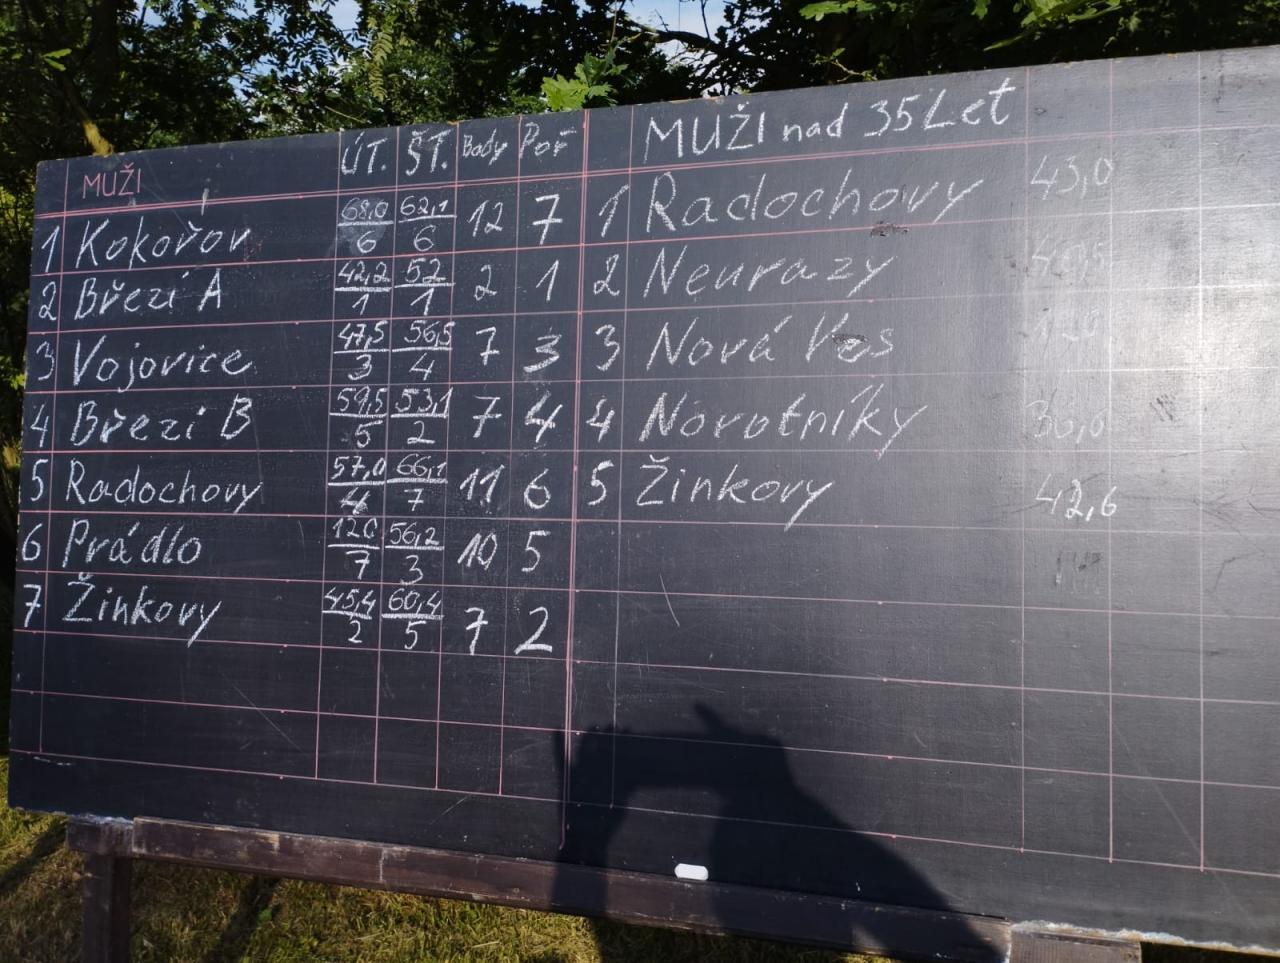 MUŽI ÚT. ŠT. Body Poř
1 Kokořov 68,0 62,1 12 7
6 6
2 Březí A 42,2 52 2 1
1 1
3 Vojovice 47,5 56,5 7 3
3 4
4 Březí B 59,5 53,1 7 4
5 2
5 Radochovy 57,0 66,1 11 6
4 7
6 Prádlo 120 56,2 10 5
7 3
7 Žinkovy 45,4 60,4 7 2
2 5
MUŽI nad 35 Let
1 Radochovy 43,0
2 Neurazy
3 Nová Ves
4 Novotníky
5 Žinkovy 42,6